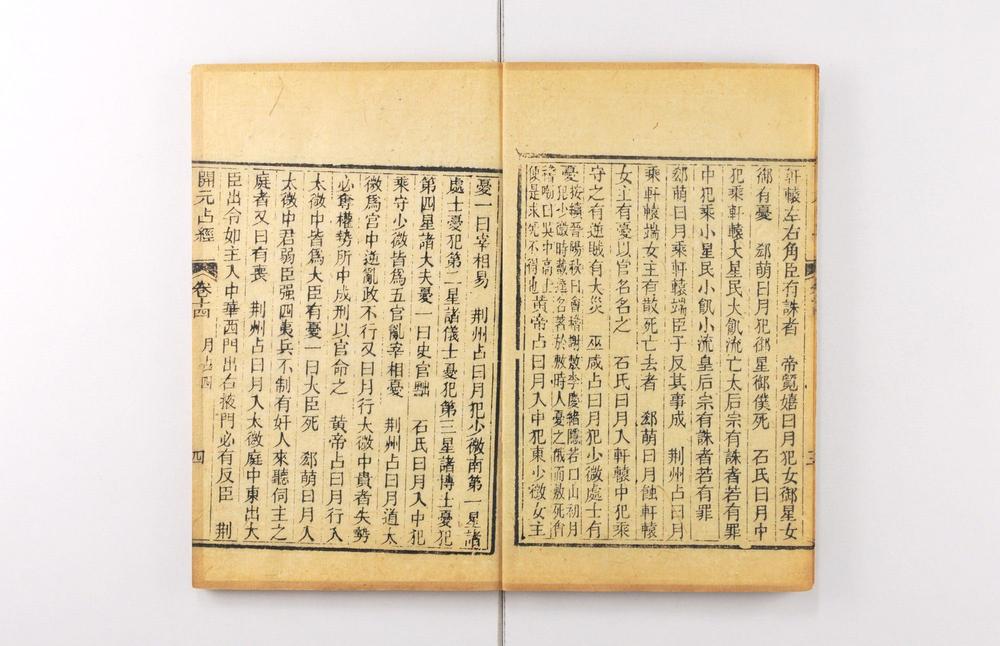 軒轅左右角臣有誅者　帝覽嬉曰月犯女御星女
御有憂　郄萌曰月犯御星御僕死　石氏曰月中
犯乘軒轅大星民大飢流亡太后宗有誅者若有罪
中犯乘小星民小飢小流皇后宗有誅者若有罪
郄萌曰月乘軒轅端臣子反其事成　荆州占曰月
乘軒轅端女主有散死亡去者　郄萌曰月蝕軒轅
女主有憂以官名名之　石氏曰月入軒轅中犯乘
守之有逆賊有大災　巫咸占曰月犯少微處士有
憂按續晉陽秋曰會稽謝敷字慶緒隱若口山初月
犯少微時戴逵名著於敷時人憂之俄而敷死會
稽嘲曰吳中高士
便是求死不得也黄帝占曰月入中犯東少微女主
憂一曰宰相易　荆州占曰月犯少微南第一星諸
處士憂犯第二星諸儀士憂犯第三星諸博士憂犯
第四星諸大夫憂一曰史官黜　石氏曰月入中犯
乘守少微皆爲五官亂宰相憂　荆州占曰月道太
微爲宫中逆亂政不行又曰月行太微中貴者失勢
必奪權勢所中成刑以官命之　黄帝占曰月行入
太微中皆爲大臣有憂一曰大臣死　郄萌曰月入
太微中君弱臣强四夷兵不制有奸人來聽伺主之
庭者又曰有喪　荆州占曰月入太微庭中東出大
臣出令如主入中華西門出右掖門必有反臣　荆
開元占經　卷十四　月占四　四